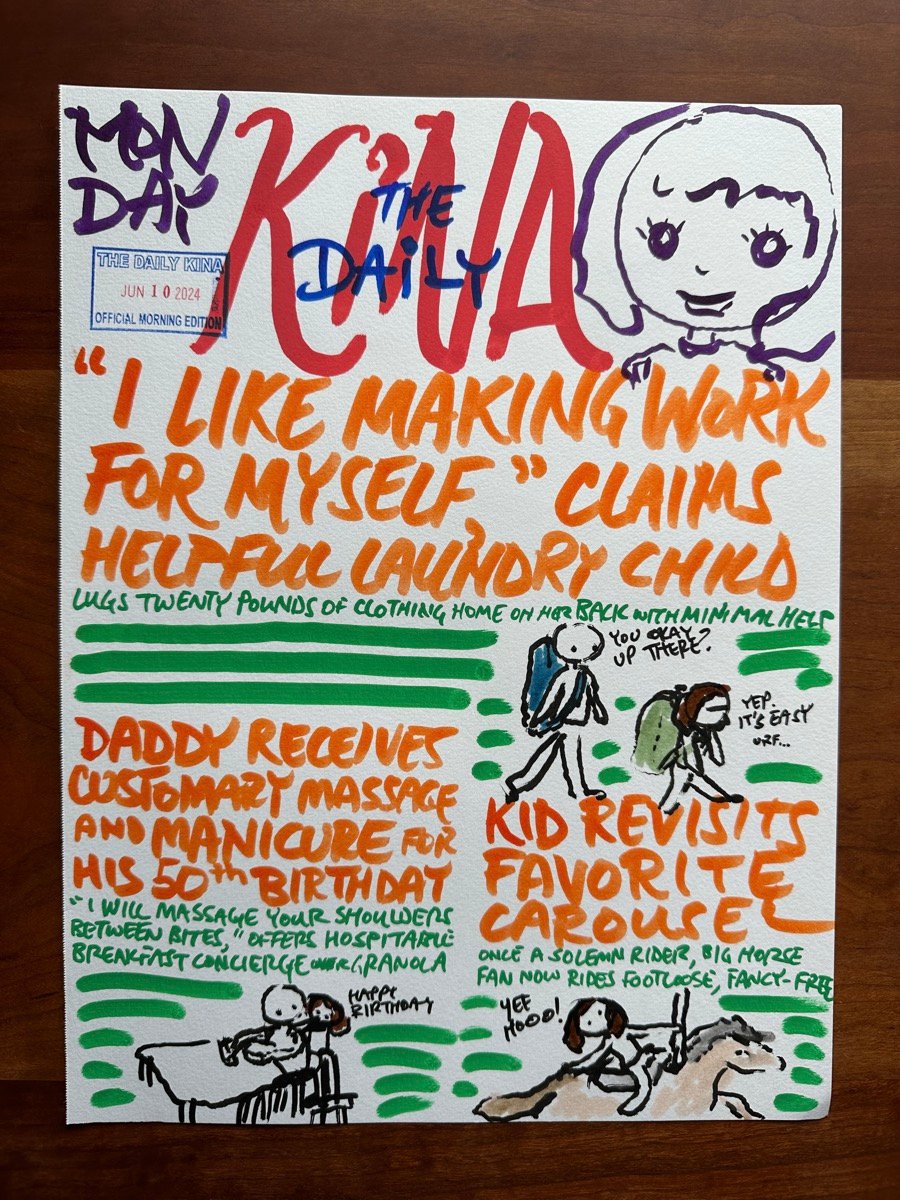 MON
DAY
KINA
THE
DAILY
THE DAILY KINA
JUN 10 2024
OFFICIAL MORNING EDITION
"I LIKE MAKING WORK
FOR MYSELF," CLAIMS
HELPFUL LAUNDRY CHILD
LUGS TWENTY POUNDS OF CLOTHING HOME ON HER BACK WITH MINIMAL HELP
YOU OKAY
UP THERE?
YEP.
IT'S EASY
URF...
DADDY RECEIVES
CUSTOMARY MASSAGE
AND MANICURE FOR
HIS 50th BIRTHDAY
"I WILL MASSAGE YOUR SHOULDERS
BETWEEN BITES," OFFERS HOSPITABLE
BREAKFAST CONCIERGE OVER GRANOLA
HAPPY
BIRTHDAY
KID REVISITS
FAVORITE
CAROUSEL
ONCE A SOLEMN RIDER, BIG HORSE
FAN NOW RIDES FOOTLOOSE, FANCY-FREE
YEE
HOOO!